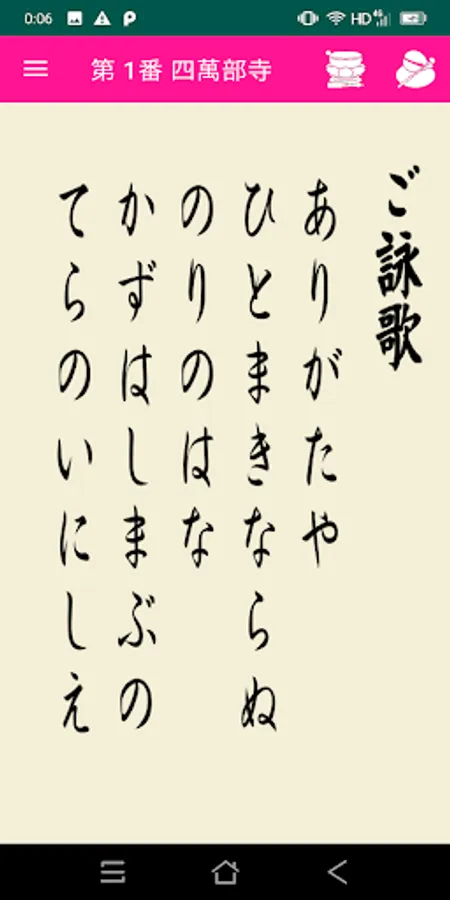 0:06
HD 4G
第 1番 四萬部寺
ご詠歌
ありがたや
ひとまきならぬ
のりのはな
かずはしまぶの
てらのいにしえ